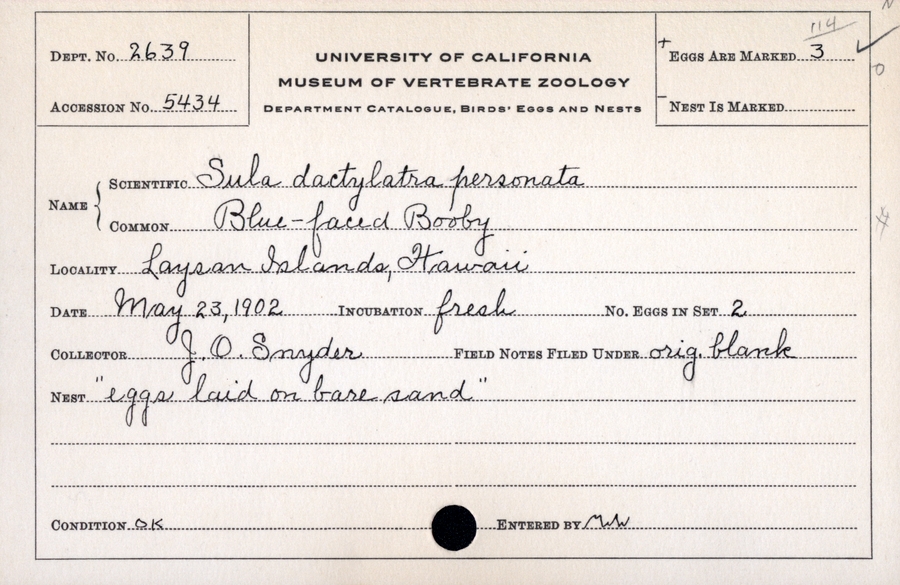 114
DEPT. No. 2639
UNIVERSITY OF CALIFORNIA
+ EGGS ARE MARKED 3
MUSEUM OF VERTEBRATE ZOOLOGY
ACCESSION No. 5434
DEPARTMENT CATALOGUE, BIRDS' EGGS AND NESTS
- NEST IS MARKED
NAME
SCIENTIFIC Sula dactylatra personata
COMMON Blue-faced Booby
LOCALITY Laysan Islands, Hawaii
DATE May 23, 1902 INCUBATION fresh No. EGGS IN SET 2
COLLECTOR J. O. Snyder FIELD NOTES FILED UNDER orig. blank
NEST "eggs laid on bare sand"
CONDITION OK ENTERED BY